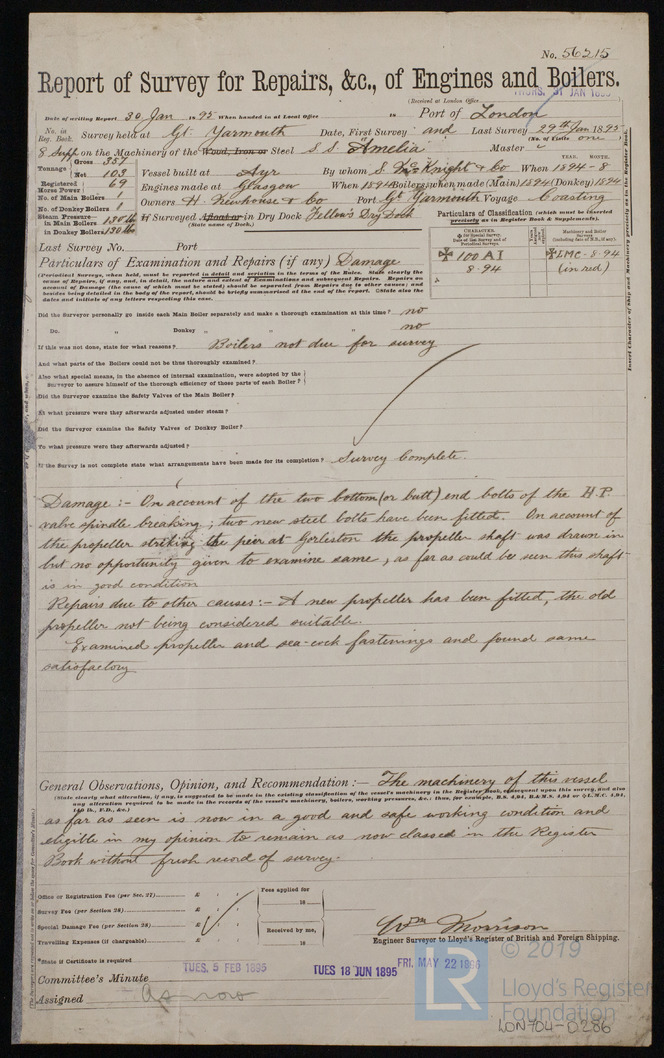 No. 56215
Report of Survey for Repairs, &c., of Engines and Boilers.
THURS. 31 JAN 1895
(Received at London Office
Date of writing Report 30 Jan 1895 When handed in at Local Office 18 Port of London
No. in Reg. Book. Survey held at Gt. Yarmouth Date, First Survey and Last Survey 29th Jan 1895
(No. of Visits one)
8 Supp on the Machinery of the Wood, Iron or Steel S.S. Amelia Master
Tonnage Gross 357
Net 103
Vessel built at Ayr By whom S. McKnight & Co When 1894-8
YEAR. MONTH.
Registered Horse Power 69
Engines made at Glasgow When 1894 Boilers, when made (Main) 1894 (Donkey) 1894
No. of Main Boilers 1
No. of Donkey Boilers 1
Owners H. Newhouse & Co Port Gt Yarmouth Voyage Coasting
Steam Pressure in Main Boilers 130 lb
in Donkey Boilers 130 lbs
If Surveyed Afloat or in Dry Dock Fellows Dry Dock
(State name of Dock.)
Particulars of Classification (which must be inserted precisely as in Register Book & Supplements).
CHARACTER.
✠ for Special Survey.
Date of last Survey and of Periodical Surveys.
Machinery and Boiler Surveys (including date of N.B., if any).
✠ 100 A1
8.94
✠ LMC-8-94
(in red)
Insert Character of Ship and Machinery precisely as in the Register Book.
Last Survey No. Port
Particulars of Examination and Repairs (if any) Damage
(Periodical Surveys, when held, must be reported in detail and seriatim in the terms of the Rules. State clearly the
cause of Repairs, if any, and, in detail, the nature and extent of Examinations and subsequent Repairs. Repairs on
account of Damage (the cause of which must be stated) should be separated from Repairs due to other causes; and
besides being detailed in the body of the report, should be briefly summarised at the end of the report. State also the
dates and initials of any letters respecting this case.
Did the Surveyor personally go inside each Main Boiler separately and make a thorough examination at this time? no
Do. „ Donkey „ „ „ no
If this was not done, state for what reasons? Boilers not due for survey
And what parts of the Boilers could not be thus thoroughly examined?
Also what special means, in the absence of internal examination, were adopted by the
Surveyor to assure himself of the thorough efficiency of those parts of each Boiler?
Did the Surveyor examine the Safety Valves of the Main Boiler?
At what pressure were they afterwards adjusted under steam?
Did the Surveyor examine the Safety Valves of Donkey Boiler?
To what pressure were they afterwards adjusted?
If the Survey is not complete state what arrangements have been made for its completion? Survey Complete.
Damage :- On account of the two bottom (or butt) end bolts of the H.P.
valve spindle breaking; two new steel bolts have been fitted. On account of
the propeller striking the pier at Gorleston the propeller shaft was drawn in
but no opportunity given to examine same, as far as could be seen this shaft
is in good condition
Repairs due to other causes:- A new propeller has been fitted, the old
propeller not being considered suitable.
Examined propeller and sea-cock fastenings and found same
satisfactory
General Observations, Opinion, and Recommendation:— The machinery of this vessel
(State clearly what alteration, if any, is suggested to be made in the existing classification of the vessel's machinery in the Register Book, consequent upon this survey, and also
any alteration required to be made in the records of the vessel's machinery, boilers, working pressures, &c.: thus, for example, B.S. 4,94, B.&M.S. 4,94 or ✠L.M.C. 4,94,
140 lb., F.D., &c.)
as far as seen is now in a good and safe working condition and
eligible in my opinion to remain as now classed in the Register
Book without fresh record of survey.
Office or Registration Fee (per Sec. 27) £ : :
Survey Fee (per Section 28) £ : :
Special Damage Fee (per Section 28) £ : :
Travelling Expenses (if chargeable) £ : :
Fees applied for
18
Received by me,
18
Wm Morrison
Engineer Surveyor to Lloyd's Register of British and Foreign Shipping.
*State if Certificate is required
Committee's Minute TUES. 5 FEB 1895 TUES 18 JUN 1895 FRI. MAY 22 1896
Assigned As now
© 2019
LR
Lloyd's Register
Foundation
LON704-0286